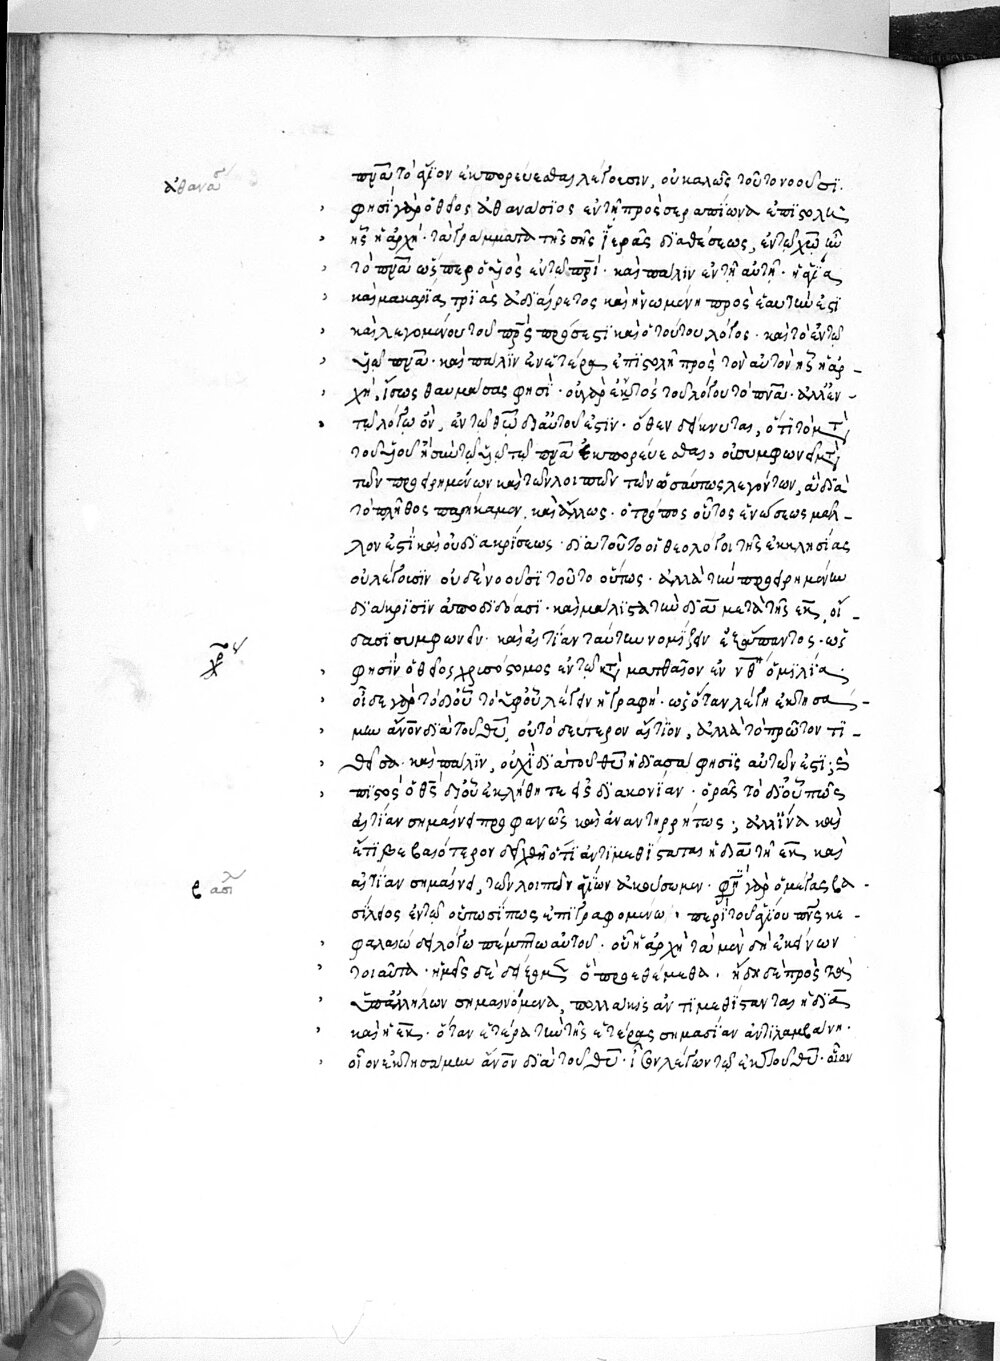 ἀθανα
πνα τὸ ἅγιον ἐκπορεύεσθαι λέγουσιν, οὐ καλῶς τοῦτο νοοῦσι.
φησὶ γὰρ ὁ θεῖος ἀθανάσιος ἐν τῇ πρὸς σεραπίωνα ἐπιστολῇ
ἧς ἡ ἀρχή· τὰ γράμματα τῆς σῆς ἱερᾶς διαθέσεως, ἐν τῷ χω
τὸ πνα ὥσπερ ὁ υἱὸς ἐν τῷ πρι· καὶ πάλιν ἐν τῇ αὐτῇ· ἡ ἁγία
καὶ μακαρία τριὰς ἀδιαίρετος καὶ ἡνωμένη πρὸς ἑαυτήν ἐστι
καὶ λεγομένου τοῦ πρς πρόσεστι καὶ ὁ τούτου λόγος· καὶ τὸ ἐν τῷ
υἱῷ πνα· καὶ πάλιν ἐν ἑτέρα ἐπιστολῇ πρὸς τὸν αὐτὸν ἧς ἡ ἀρ-
χή, ἴσως θαυμάσας φησί· οὐ γὰρ ἐκτός τοῦ λόγου τὸ πνα· ἀλλ' ἐν
τῷ λόγῳ ὂν, ἐν τῷ θω δι' αὐτοῦ ἐστιν· ὅθεν δείκνυται, ὅτι τὸ μετὰ
τοῦ υἱοῦ ἢ σὺν τῷ υἱῷ τὸ πνα ἐκπορεύεσθαι οἱ συμφωνεῖ
τῶν προειρημένων καὶ τῶν λοιπῶν τῶν ὡσαύτως λεγόντων, ἃ διὰ
τὸ πλῆθος παρήκαμεν. καὶ ἄλλως· ὁ τρόπος οὗτος ἑνώσεως μᾶλ-
λον ἐστὶ καὶ οὐ διακρίσεως· διὰ τοῦτο οἱ θεολόγοι τῆς ἐκκλησίας
οὐ λέγουσιν οὐδὲ νοοῦσι τοῦτο οὕτως· ἀλλὰ τὴν προειρημένην
διάκρισιν ἀποδιδόασι· καὶ μάλιστα τὴν διὰ μετὰ τῆς ἐκ, οἴ-
δασι συμφωνεῖν· καὶ αἰτίαν ταύτην νομίζειν ἐξάπαντος· ὥς
χρ
φησὶν ὁ θεῖος χρυσόστομος ἐν τῷ κατὰ ματθαῖον ἐν νθ ὁμιλία·
οἶδε γὰρ τὸ δι' οὗ τὸ ὑφ' οὗ λέγειν ἡ γραφή· ὡς ὅταν λέγῃ ἐκτησά-
μην ἄνον διὰ τοῦ θυ, οὐ τὸ δεύτερον αἴτιον, ἀλλὰ τὸ πρῶτον τι-
θεῖσα· καὶ πάλιν, οὐχὶ διὰ τοῦ θυ ἡ διασάφησις αὐτῶν ἐστι;
πιστὸς ὁ θς δι' οὗ ἐκλήθητε εἰς διακονίαν· ὁρᾶς τὸ δι' οὗ πῶς
αἰτίαν σημαίνει προφανῶς καὶ ἀναντιρρήτως; ἀλλ' ἵνα καὶ
ἔτι βεβαιότερον δειχθῇ ὅτι ἀντιμεθίσταται ἡ διὰ τῇ ἐκ καὶ
βασι
αἰτίαν σημαίνει, τῶν λοιπῶν ἁγίων ἀκούσωμεν· φησὶ γὰρ ὁ μέγας βα-
σίλειος ἐν τῷ οὑτωσί πως ἐπιγραφομένω· περὶ τοῦ ἁγίου πνς κε-
φαλαίω λόγω πέμπτω αὐτοῦ· οὗ ἡ ἀρχὴ τὰ μὲν δὴ ἐκείνων
τοιαῦτα· ἡμεῖς δὲ ὃ προεθέμεθα· ἤδη δὲ πρὸς τὰ
ὑπ' ἀλλήλων σημαινόμενα, πολλάκις ἀντιμεθίστανται ἡ διὰ
καὶ ἡ ἐκ· ὅταν ἑτέρα τὴν τῆς ἑτέρας σημασίαν ἀντιλαμβάνη·
οἷον ἐκτησάμην ἄνον διὰ τοῦ θυ· ἴσον λέγων τῷ ἐκ τοῦ θυ· οἷον